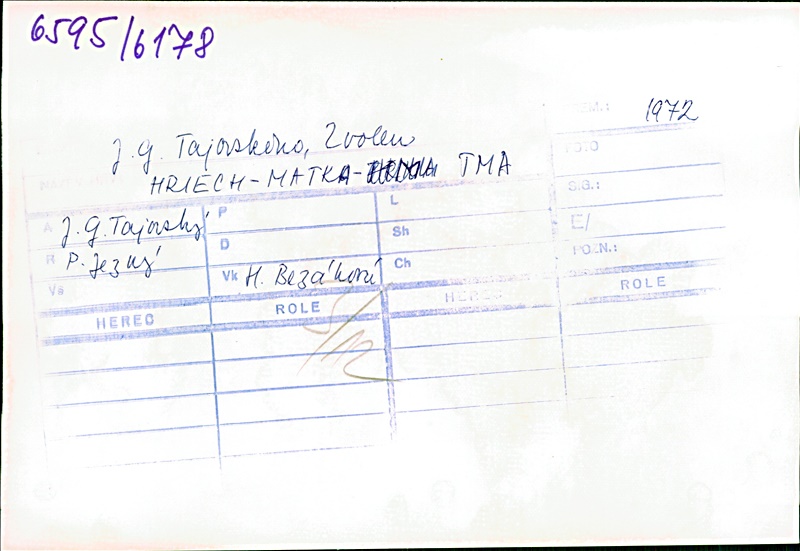 6595/6178
1972
J. G. Tajovského, Zvolen
FOTO
HRIECH-MATKA- TMA
S.G.:
A J. G. Tajovský P L
E/
R P. Jezný D Sh
POZN.:
Vs Vk H. Bezáková Ch
HEREC ROLE HEREC ROLE
5/12